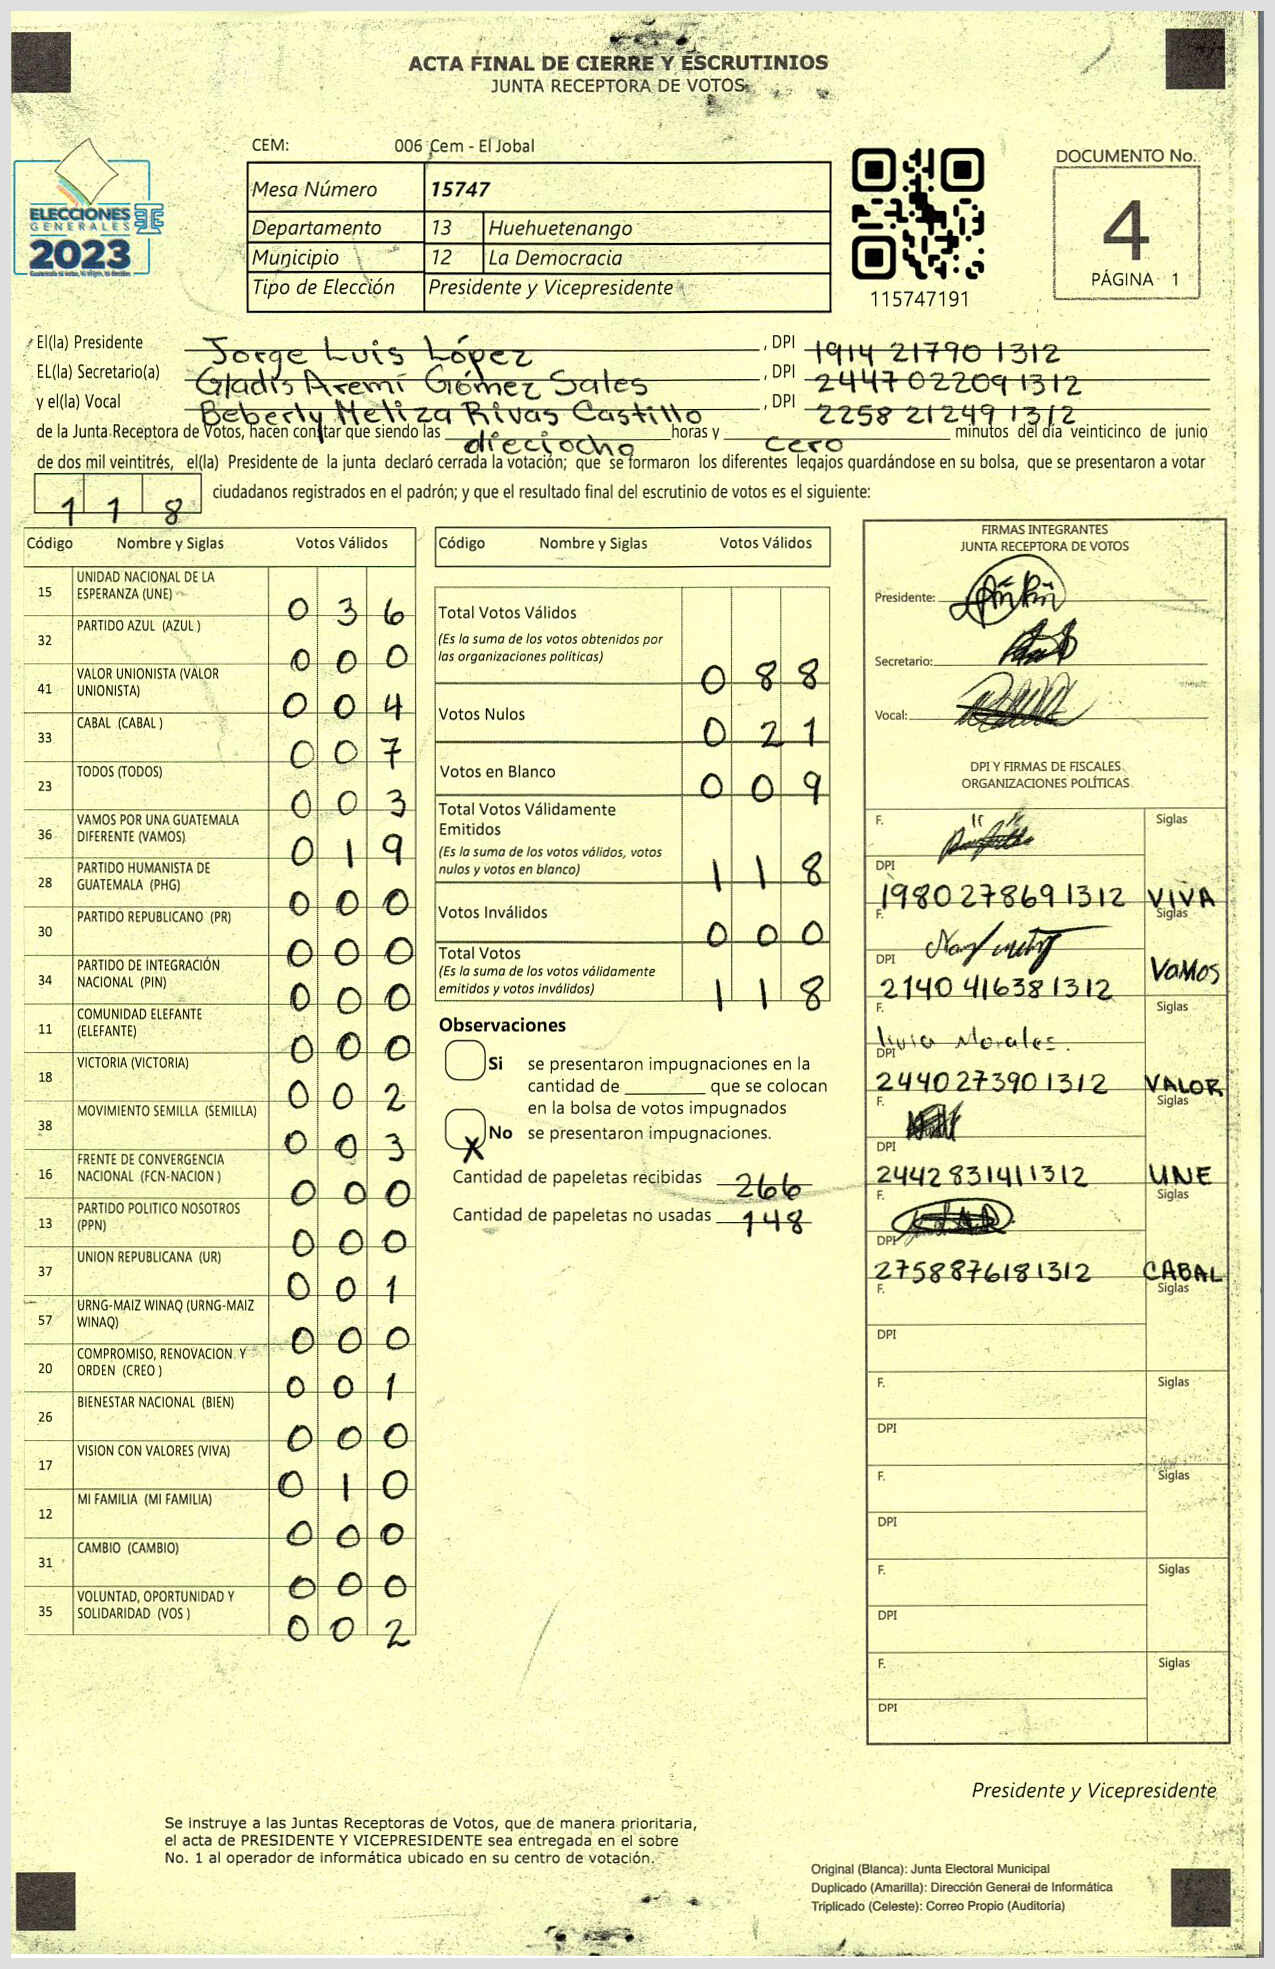 ACTA FINAL DE CIERRE Y ESCRUTINIOS
JUNTA RECEPTORA DE VOTOS
CEM: 006 Cem - El Jobal
Mesa Número 15747
Departamento 13 Huehuetenango
Municipio 12 La Democracia
Tipo de Elección Presidente y Vicepresidente
ELECCIONES
GENERALES
2023
115747191
DOCUMENTO No.
4
PÁGINA 1
El(la) Presidente Jorge Luis López , DPI 1914 21790 1312
EL(la) Secretario(a) Gladis Aremi Gómez Sales , DPI 2447 02209 1312
y el(la) Vocal Beberly Meliza Rivas Castillo , DPI 2258 21249 1312
de la Junta Receptora de Votos, hacen constar que siendo las dieciocho horas y cero minutos del día veinticinco de junio
de dos mil veintitrés, el(la) Presidente de la junta declaró cerrada la votación; que se formaron los diferentes legajos guardándose en su bolsa, que se presentaron a votar
118 ciudadanos registrados en el padrón; y que el resultado final del escrutinio de votos es el siguiente:
Código Nombre y Siglas Votos Válidos
15 UNIDAD NACIONAL DE LA ESPERANZA (UNE) 036
32 PARTIDO AZUL (AZUL ) 000
41 VALOR UNIONISTA (VALOR UNIONISTA) 004
33 CABAL (CABAL ) 007
23 TODOS (TODOS) 003
36 VAMOS POR UNA GUATEMALA DIFERENTE (VAMOS) 019
28 PARTIDO HUMANISTA DE GUATEMALA (PHG) 000
30 PARTIDO REPUBLICANO (PR) 000
34 PARTIDO DE INTEGRACIÓN NACIONAL (PIN) 000
11 COMUNIDAD ELEFANTE (ELEFANTE) 000
18 VICTORIA (VICTORIA) 002
38 MOVIMIENTO SEMILLA (SEMILLA) 003
16 FRENTE DE CONVERGENCIA NACIONAL (FCN-NACION ) 000
13 PARTIDO POLITICO NOSOTROS (PPN) 000
37 UNION REPUBLICANA (UR) 001
57 URNG-MAIZ WINAQ (URNG-MAIZ WINAQ) 000
20 COMPROMISO, RENOVACION. Y ORDEN (CREO ) 001
26 BIENESTAR NACIONAL (BIEN) 000
17 VISION CON VALORES (VIVA) 010
12 MI FAMILIA (MI FAMILIA) 000
31 CAMBIO (CAMBIO) 000
35 VOLUNTAD, OPORTUNIDAD Y SOLIDARIDAD (VOS ) 002
Código Nombre y Siglas Votos Válidos
Total Votos Válidos 088
(Es la suma de los votos obtenidos por
las organizaciones políticas)
Votos Nulos 021
Votos en Blanco 009
Total Votos Válidamente
Emitidos 118
(Es la suma de los votos válidos, votos
nulos y votos en blanco)
Votos Inválidos 000
Total Votos 118
(Es la suma de los votos válidamente
emitidos y votos inválidos)
Observaciones
Si se presentaron impugnaciones en la
cantidad de ________ que se colocan
en la bolsa de votos impugnados
X No se presentaron impugnaciones.
Cantidad de papeletas recibidas 266
Cantidad de papeletas no usadas 148
FIRMAS INTEGRANTES
JUNTA RECEPTORA DE VOTOS
Presidente:
Secretario:
Vocal:
DPI Y FIRMAS DE FISCALES
ORGANIZACIONES POLÍTICAS
F. Siglas
DPI
1980278691312 VIVA
F. Siglas
DPI
2140 416381312 VAMOS
F. Siglas
Livia Morales.
DPI
2440273901312 VALOR
F. Siglas
DPI
2442831411312 UNE
F. Siglas
DPI
2758876181312 CABAL
F. Siglas
DPI
F. Siglas
DPI
F. Siglas
DPI
F. Siglas
DPI
F. Siglas
DPI
Presidente y Vicepresidente
Se instruye a las Juntas Receptoras de Votos, que de manera prioritaria,
el acta de PRESIDENTE Y VICEPRESIDENTE sea entregada en el sobre
No. 1 al operador de informática ubicado en su centro de votación.
Original (Blanca): Junta Electoral Municipal
Duplicado (Amarilla): Dirección General de Informática
Triplicado (Celeste): Correo Propio (Auditoria)